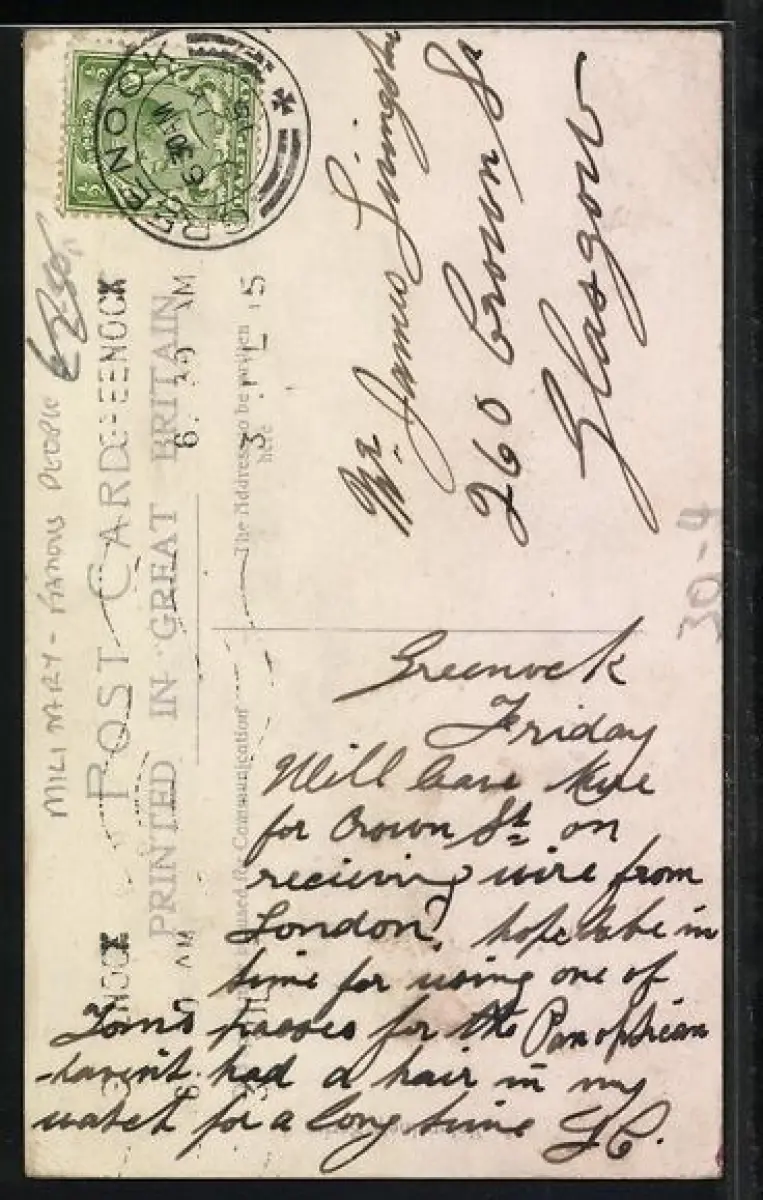 MILITARY - FAMOUS PEOPLE
POST CARD
PRINTED IN GREAT BRITAIN
The Address to be written
here
used for Communication
GREENOCK
6. 30 AM
15
GREENOCK
6. 30 AM
3 15
Mr. James Livingston
260 Crown St
Glasgow
30-4
Greenock
Friday
Will leave here
for Crown St on
recieving wire from
London, hope to be in
time for using one of
Tom's passes for the Panoptican
- havent had a hair in my
watch for a long time